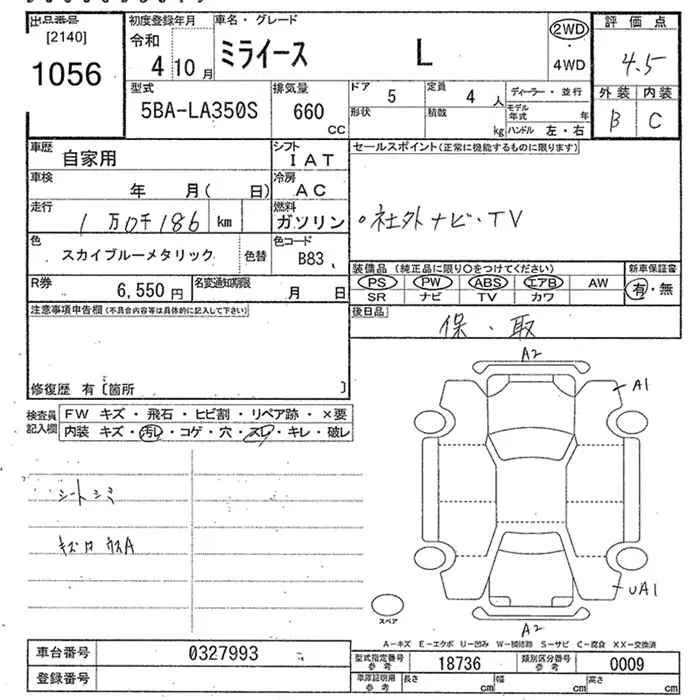 出品番号 初度登録年月 車名・グレード 評価点
[2140] 令和 ミライース L 2WD 4.5
1056 4 10月 ・ 4WD
型式 排気量 ドア 5 定員 4 人 ディーラー・並行 外装 内装
5BA-LA350S 660 CC 形状 積数 kg モデル年式 年 B C
ハンドル 左・右
車歴 自家用 シフト IAT セールスポイント(正常に機能するものに限ります)
車検 年 月( 日) 冷房 AC
走行 1万0千186 km 燃料 ガソリン 。社外ナビ・TV
色 スカイブルーメタリック 色替 色コード B83
装備品(純正品に限り○をつけてください) 新車保証書
R券 6,550円 名変通知期限 月 日 PS PW ABS エアB AW 有・無
SR ナビ TV カワ
注意事項申告欄(不具合内容等は具体的に記入して下さい) 後日品 保・取
修復歴 有[箇所 ]
検査員記入欄 FW キズ・飛石・ヒビ割・リペア跡・×要
内装 キズ・汚レ・コゲ・穴・スレ・キレ・破レ
A2
A1
シートシミ
UA1
スペア
A2
A-キズ E-エクボ U-凹み W-補修跡 S-サビ C-腐食 XX-交換済
車台番号 0327993 型式指定番号 参考 18736 類別区分番号 参考 0009
登録番号 車庫証明用 参考 長さ cm 幅 cm 高さ cm